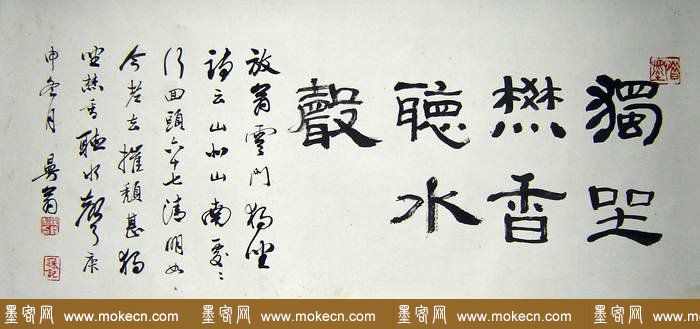 獨坐
燓香
聽水
聲
放翁雲門獨坐
詩云山北山南處〻
行回頭六十七清明如
今老去摧頹甚獨
坐焚香聽水聲庚
申冬月 曼翁
墨客网 www.mokecn.com 墨客网 www.mokecn.com 墨客网 www.mokecn.com 墨客网 www.mokecn.com